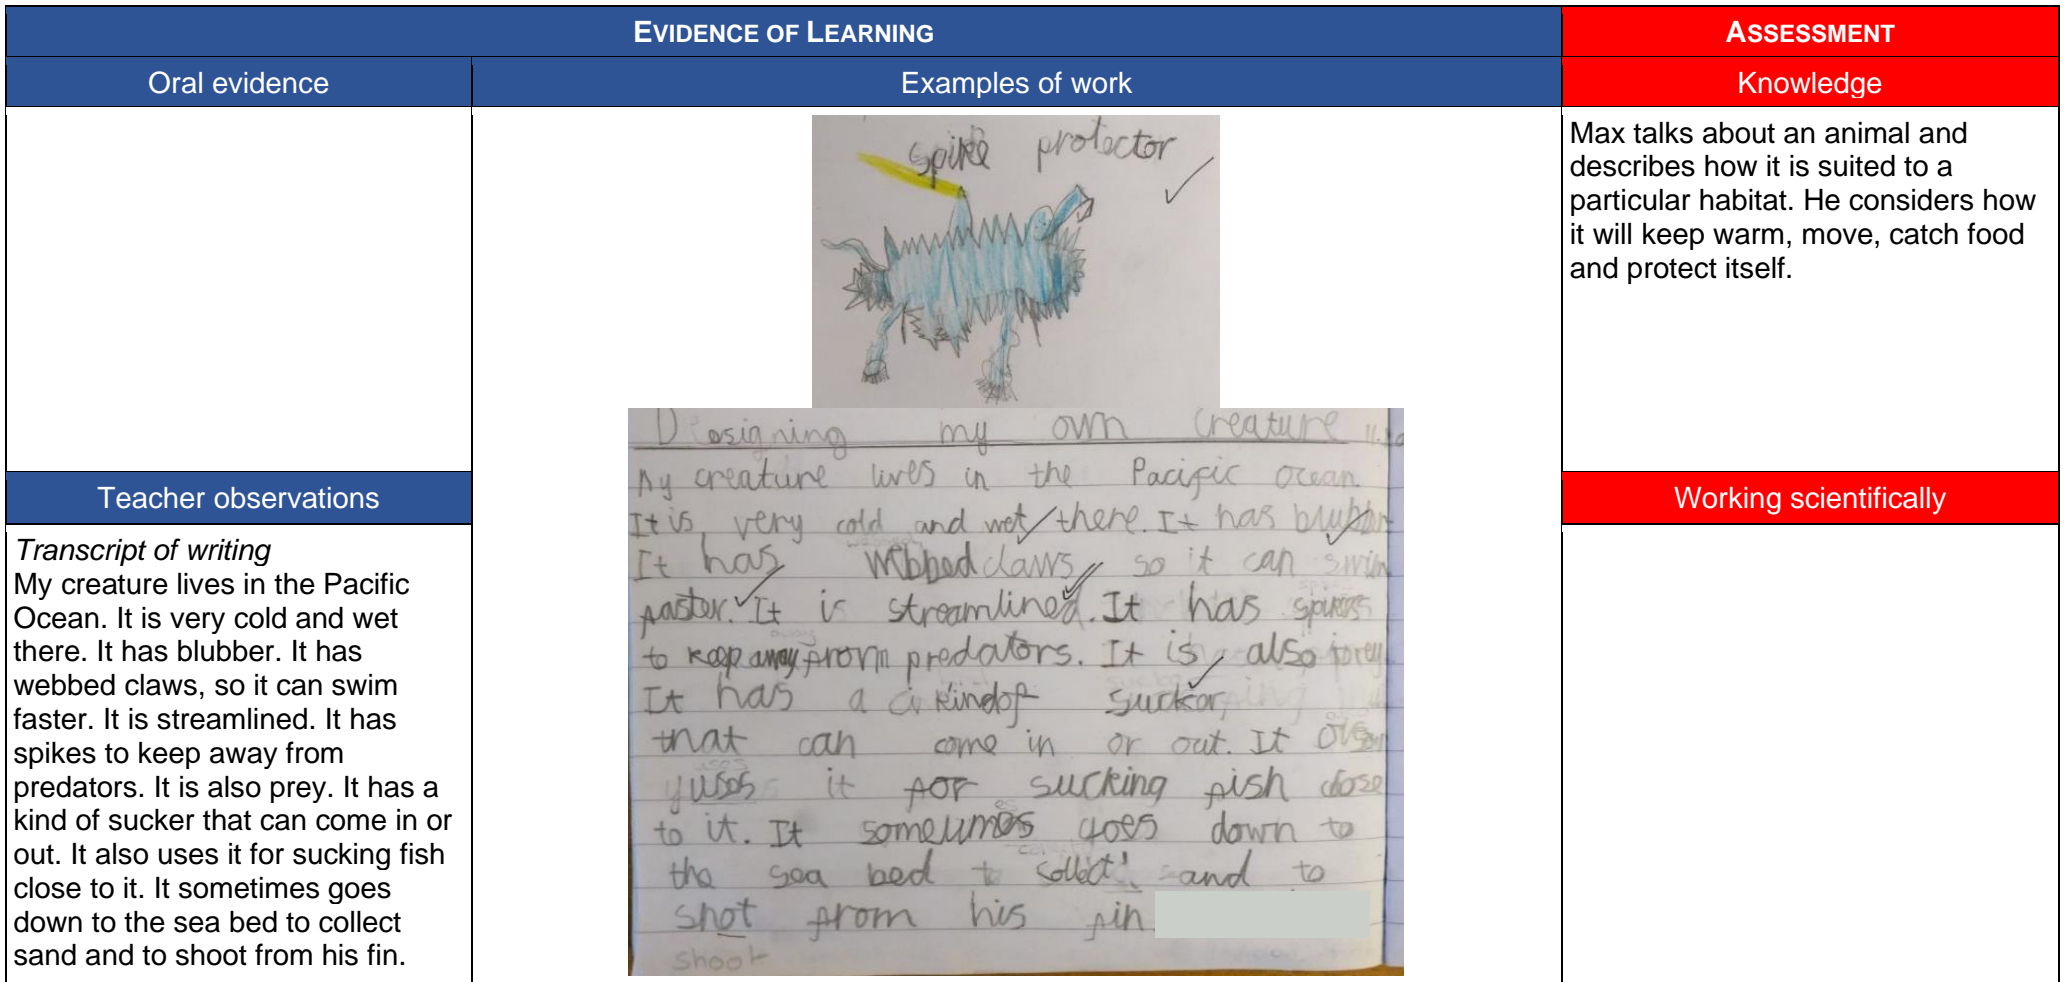 EVIDENCE OF LEARNING
ASSESSMENT
Oral evidence
Examples of work
Knowledge
spike protector
Max talks about an animal and
describes how it is suited to a
particular habitat. He considers how
it will keep warm, move, catch food
and protect itself.
Designing my own creature
My creature lives in the Pacific ocean
It is very cold and wet there. It has blubber
It has webbed claws so it can swim
faster. It is streamlined. It has spikes
to keep away from predators. It is also prey
It has a kind of sucker
that can come in or out. It
yuses it for sucking fish close
uses
to it. It sometimes goes down to
the sea bed to collect sand to
shot from his fin
shoot
Teacher observations
Transcript of writing
My creature lives in the Pacific
Ocean. It is very cold and wet
there. It has blubber. It has
webbed claws, so it can swim
faster. It is streamlined. It has
spikes to keep away from
predators. It is also prey. It has a
kind of sucker that can come in or
out. It also uses it for sucking fish
close to it. It sometimes goes
down to the sea bed to collect
sand and to shoot from his fin.
Working scientifically